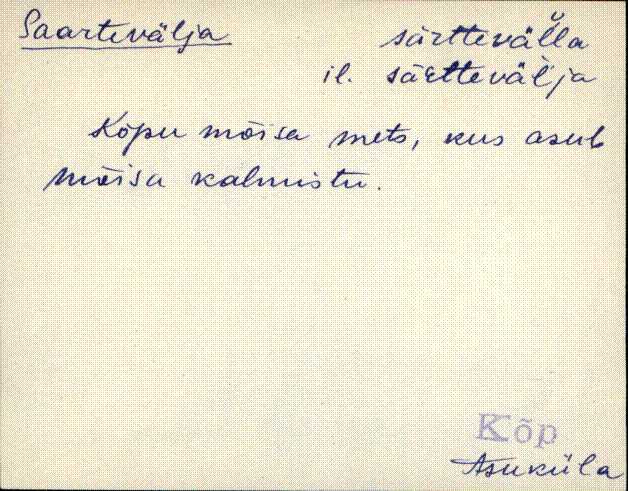 Saartevälja särttevälla
il. särttevälja
Kõpu mõisa mets, kus asub
mõisa kalmistu.
Kõp
Asuküla